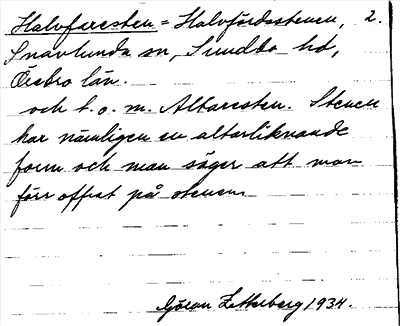 Halvfaresten = Halvfördsstenen, 2.
Snavlunda sn, Sundbo hd,
Örebro län.
och t. o. m. Altaresten. Stenen
har nämligen en altarliknande
form och man säger att man
förr offrat på stenen
Göran Zetterberg 1934.